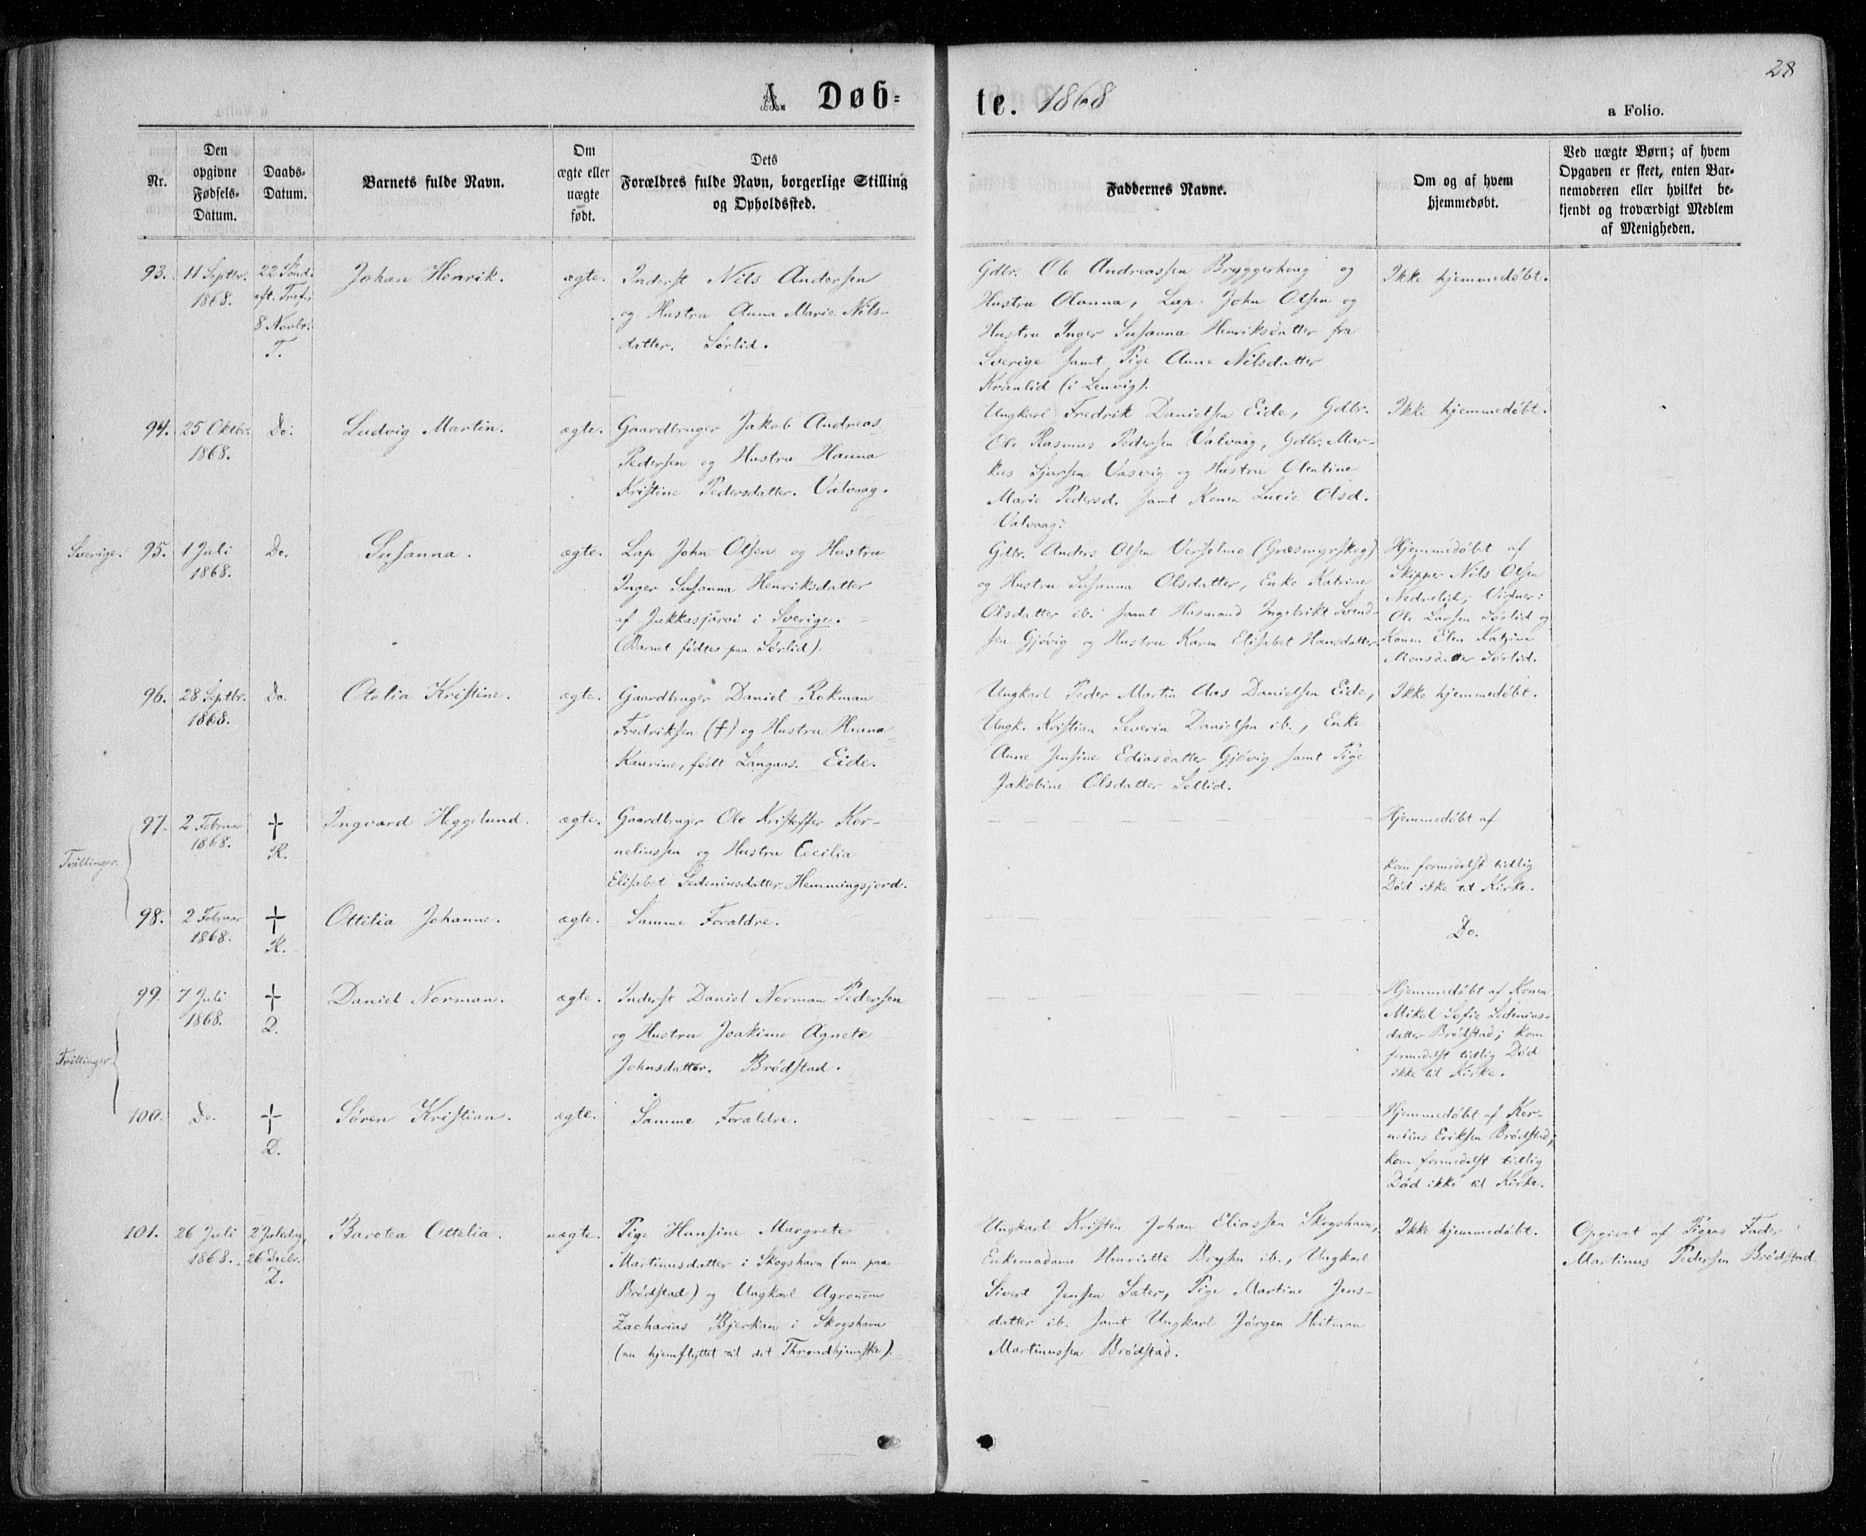 28
A. Døb-
te. 1868
a Folio.
Nr.
Den opgivne Fødsels-Datum.
Daabs-Datum.
Barnets fulde Navn.
Om ægte eller uægte født.
Dets Forældres fulde Navn, borgerlige Stilling og Opholdssted.
Faddernes Navne.
Om og af hvem hjemmedøbt.
Ved uægte Børn; af hvem Opgaven er skeet, enten Barnemoderen eller hvilket bekjendt og troværdigt Medlem af Menigheden.
93.
11 Septbr.
1868.
22 Sønd.
eft. Tref.
8 Novbr.
T.
Johan Henrik.
ægte.
Inderst Nils Andersen
og Hustru Anna Marie Nils-
datter. Sørlid.
Gdbr. Ole Andreassen Bryggerhaug og
Hustru Olanna, Lap John Olsen og
Hustru Inger Susanna Henriksdatter fra
Sverige samt Pige Anne Nilsdatter
Kranlid (i Lenvig).
Ikke hjemmedøbt.
94.
25 Oktbr.
1868.
Do.
Ludvig Martin.
ægte.
Gaardbruger Jakob Andreas
Pedersen og Hustru Hanna
Kristine Pedersdatter. Valvaag.
Ungkarl Fredrik Danielsen Eide, Gdbr.
Ole Rasmus Pedersen Valvaag, Gdbr. Mar-
kus Sjursen Vasvig og Hustru Olentine
Marie Pedersd. samt Konen Lucie Olsd.
Valvaag.
Ikke hjemmedøbt.
Sverige.
95.
1 Juli
1868.
Do.
Susanna.
ægte.
Lap John Olsen og Hustru
Inger Susanna Henriksdatter
af Jukkasjärvi i Sverige.
(Barnet fødtes paa Sørlid).
Gdbr. Anders Olsen Versolmo (Græsmyrskog)
og Hustru Susanna Olsdatter, Enke Katrine
Olsdatter ib. samt Husmand Ingebrikt Svend-
sen Gjøvig og Hustru Karen Elisabet Hansdatter.
Hjemmedøbt af
Skipper Nils Olsen
Nedrelid; Vidner:
Ole Larsen Sørlid og
Konen Elen Katrine
Monsdatter Sørlid.
96.
28 Septbr.
1868.
Do.
Otelia Kristine.
ægte.
Gaardbruger Daniel Rokman
Fredriksen (†) og Hustru Hanna
Kaurine, født Langaas. Eide.
Ungkarl Peder Martin Aas Danielsen Eide,
Ungk. Kristian Severin Danielsen ib., Enke
Anne Jensine Ediasdatter Gjøvig samt Pige
Jakobine Olsdatter Sollid.
Ikke hjemmedøbt.
Tvillinger.
97.
2 Februar
1868.
†
K.
Ingvard Heggelund.
ægte.
Gaardbruger Ole Kristoffer Kor-
neliussen og Hustru Cecilia
Elisabet Sedeniusdatter Hemmingsjord.
Hjemmedøbt af
kom formedelst tidlig
Død ikke til Kirke.
98.
2 Februar
1868.
†
K.
Ottilia Johanne.
ægte.
Samme Forældre.
Do.
Tvillinger
99.
7 Juli
1868.
†
D.
Daniel Norman.
ægte.
Inderst Daniel Norman Pedersen
og Hustru Joakime Agnete
Johnsdatter. Brødstad.
Hjemmedøbt af Konen
Mikel Sofie Sedenius-
datter Brødstad; kom
formedelst tidlig Død
ikke til Kirke.
100.
Do.
†
D.
Søren Kristian.
ægte.
Samme Forældre.
Hjemmedøbt af Kor-
nelius Eriksen Brødstad;
kom formedelst tidlig
Død ikke til Kirke.
101.
26 Juli
1868.
2 Juledag,
26 Decbr.
D.
Barotea Ottelia.
uægte.
Pige Hansine Margrete
Martinusdatter i Skogshavn (nu paa
Brødstad) og Ungkarl Agronom
Zacharias Bjerkan i Skogshavn
(nu hjemflyttet til det Throndhjemske).
Ungkarl Kristen Johan Eliassen Skogshavn,
Enkemadame Henriette ib., Ungkarl
Sivert Jensen Sæter, Pige Martine Jens-
datter ib. samt Ungkarl Jørgen Heitman
Martinussen Brødstad.
Ikke hjemmedøbt.
Opgivet af Pigens Fader
Martinus Pedersen Brødstad.